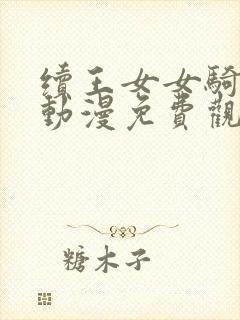 續王女女騎
動漫免費觀
糖木子